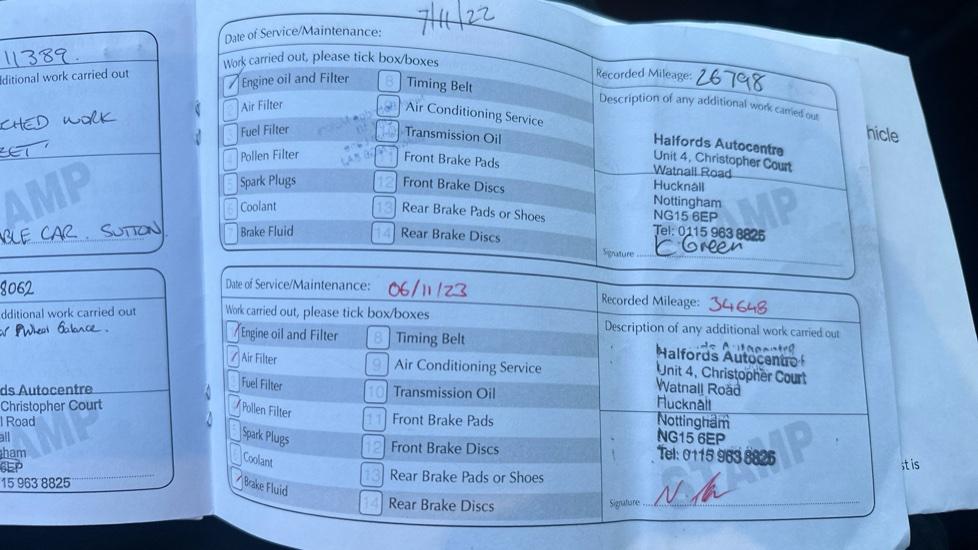 11389.
dditional work carried out
CHED WORK
ABLE CAR. SUTTON
8062
dditional work carried out
Wheel Balance.
ds Autocentre
Christopher Court
l Road
all
ham
6EP
15 963 8825
7/11/22
Date of Service/Maintenance:
Work carried out, please tick box/boxes
Engine oil and Filter
8 Timing Belt
Air Filter
Air Conditioning Service
Fuel Filter
Transmission Oil
Pollen Filter
Front Brake Pads
Spark Plugs
12 Front Brake Discs
Coolant
13 Rear Brake Pads or Shoes
Brake Fluid
14 Rear Brake Discs
Recorded Mileage: 26798
Description of any additional work carried out
Halfords Autocentre
Unit 4, Christopher Court
Watnall Road
Hucknall
Nottingham
NG15 6EP
Tel: 0115 963 8825
Signature K Green
STAMP
Date of Service/Maintenance: 06/11/23
Work carried out, please tick box/boxes
Engine oil and Filter
8 Timing Belt
Air Filter
9 Air Conditioning Service
Fuel Filter
10 Transmission Oil
Pollen Filter
11 Front Brake Pads
Spark Plugs
12 Front Brake Discs
Coolant
13 Rear Brake Pads or Shoes
Brake Fluid
14 Rear Brake Discs
Recorded Mileage: 34648
Description of any additional work carried out
Halfords Autocentre
Unit 4, Christopher Court
Watnall Road
Hucknall
Nottingham
NG15 6EP
Tel: 0115 963 8825
Signature
STAMP
hicle
st is